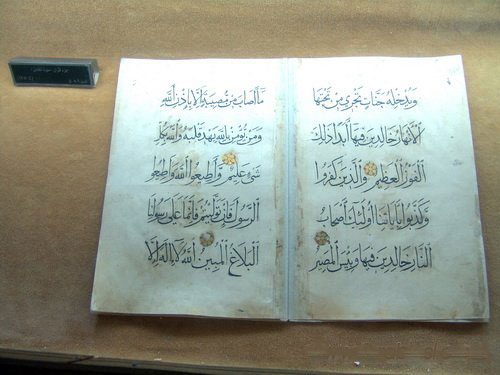 ويدخله جنات تجري من تحتها
الأنهار خالدين فيها أبدا ذلك
الفوز العظيم والذين كفروا
وكذبوا بآياتنا أولئك أصحاب
النار خالدين فيها وبئس المصير
ما أصاب من مصيبة إلا بإذن الله
ومن يؤمن بالله يهد قلبه والله بكل
شيء عليم وأطيعوا الله وأطيعوا
الرسول فإن توليتم فإنما على رسولنا
البلاغ المبين الله لا إله إلا